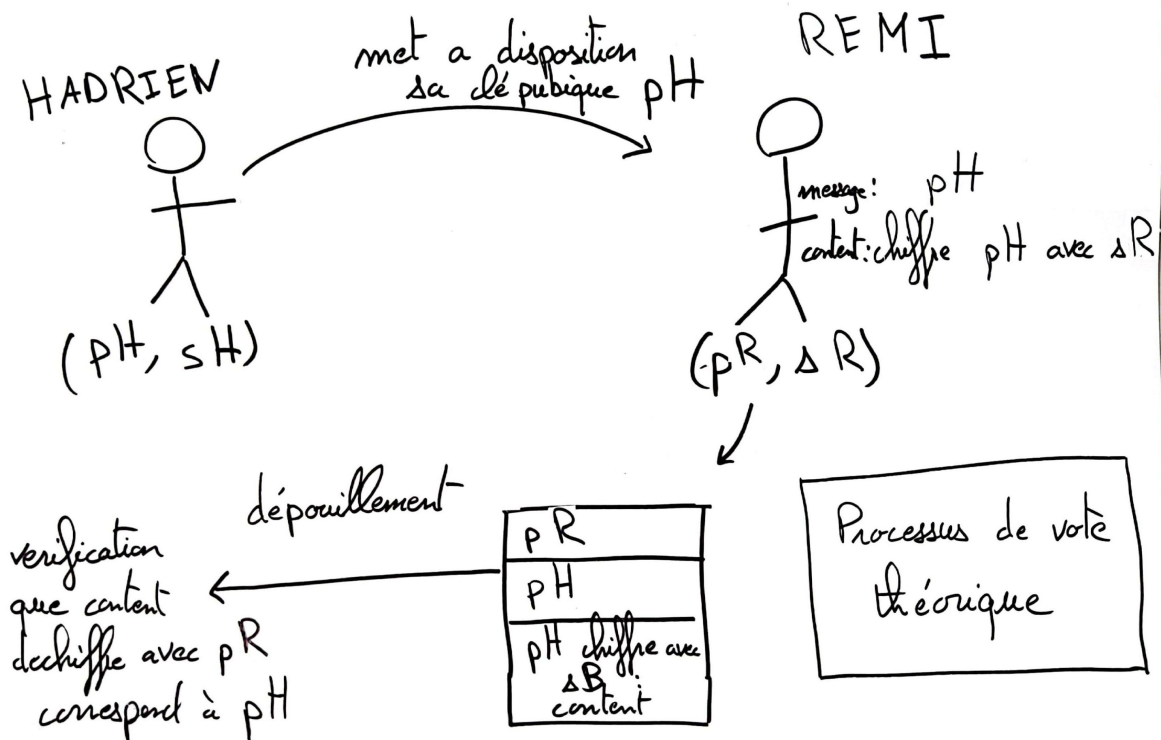 HADRIEN
met a disposition
sa clé pubique pH
REMI
message: pH
content: chiffre pH avec sR
(pH, sH)
(pR, sR)
dépouillement
verification
que content
dechiffre avec pR
correspend à pH
pR
pH
pH chiffre avec
sB
content
Processus de vote
théorique